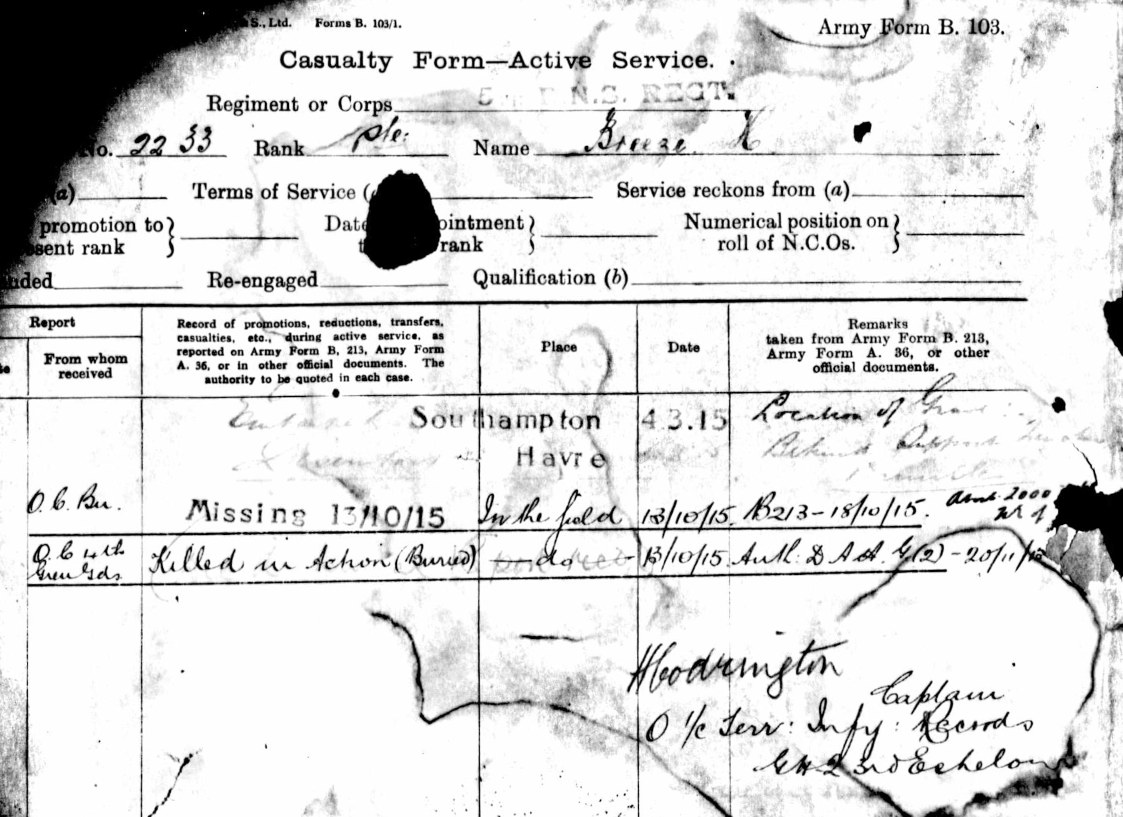 S., Ltd. Forms B. 103/1.
Army Form B. 103.
Casualty Form—Active Service.
Regiment or Corps N.S. REGT.
No. 2233 Rank Pte. Name Breeze H
(a) Terms of Service ( Service reckons from (a)
promotion to Date ointment Numerical position on
sent rank rank roll of N.C.Os.
nded Re-engaged Qualification (b)
Report
From whom
received
Record of promotions, reductions, transfers,
casualties, etc., during active service, as
reported on Army Form B, 213, Army Form
A. 36, or in other official documents. The
authority to be quoted in each case.
Place
Date
Remarks
taken from Army Form B. 213,
Army Form A. 36, or other
official documents.
Southampton 4.3.15 Location of
Havre Behind Support
O. C. Bn. Missing 13/10/15 In the field 13/10/15. B213 – 18/10/15. 2000
O. C 4th Killed in Action (Buried) do 13/10/15. Auth. D A A G (2) – 20/11/15
Gren Gds
HCodrington
Captain
O i/c Terr: Infy: Records
GHQ 3rd Echelon